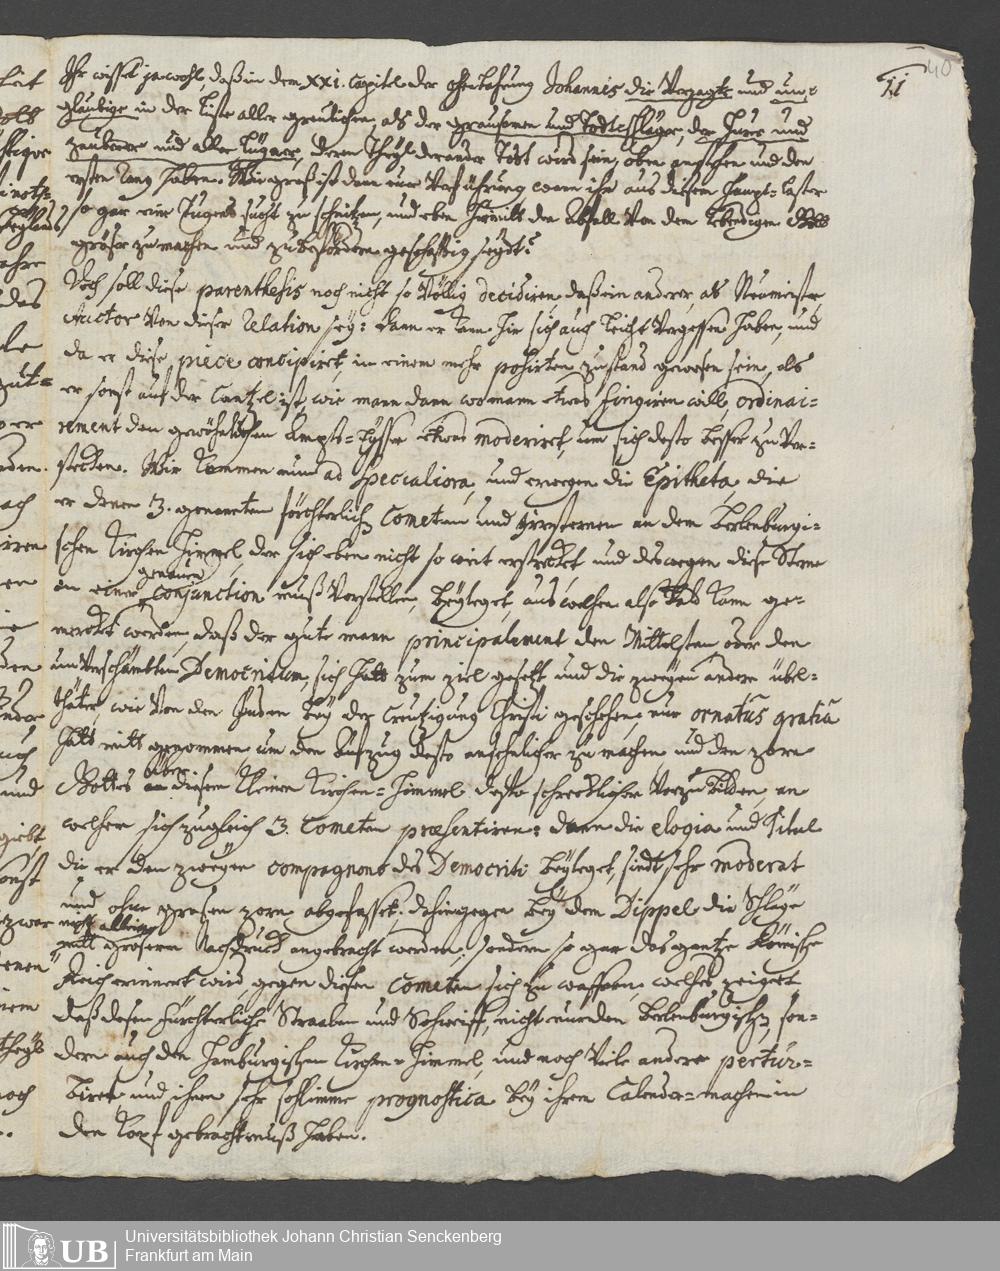 40
11
Ihr wisset ja wohl, daß in dem XXI. Capitel der offenbahrung Johannis die Verzagte und un-
glaubige in der Liste aller greulichen, als der grausamen und Todtschläger, der Hurer und
zauberer und aller Lügner, deren Theyl der ander Todt wird sein, oben anstehen und den
ersten Rang haben. Wie groß ist dann eure Verführung wann ihr aus diesem Haupt-laster
so gar eine Tugend sucht zu schnitzen, und eben hiemit den abfall von dem Lebendigen Gott
gröser zu machen und zu befördern geschäfftig seydt?
Doch soll diese parenthesis noch nicht so völlig decidiren daß ein anderer, als Neumeister
Auctor von dieser relation sey: dann er kann hie sich auch leicht vergessen haben, und
da er diese piece concipiret, in einem mehr polirten zustand gewesen sein, als
er sonst auf der Cantzel ist, wie mann dann wo mann etwas fingiren will ordinai-
rement den gewöhnlichen Ampts-Eyffer etwas moderiret, um sich desto besser zu ver-
stecken. Wir kommen nun ad specialiora, und erwegen die Epitheta, die
er denen 3. genannten förchterlich Cometen und Irrsternen an dem Berlenburgi-
schen Kirchen Himmel, der sich eben nicht so weit erstrecket und deswegen diese Sterne
genauer
in einer conjunction muß vorstellen, beyleget, aus welchen also bald kann ge-
mercket werden, daß der gute mann principalement den Mittelsten oder den
unverschämbten Democritum, sich hatt zum ziel gesetzt und die zweyen andern übel-
thäter, wie von den Juden bey der Creutzigung Christi geschehen, nur ornatus gratiâ
hatt mitt genommen um den Aufzug desto ansehnlicher zu machen, und den zorn
über
Gottes diesem kleinen Kirchen-Himmel desto schrecklicher vorzubilden, an
welchem sich zugleich 3. Cometen præsentiren: dann die elogia und Titul
die er den zweyen compagnons des Democriti beyleget, sindt sehr moderat
und ohne grosen zorn abgefasset. dahingegen bey dem Dippel die Schläge
nicht allein
mitt grösserm Nachdruck angebracht werden, sondern so gar das gantze Römische
Reich erinnert wird, gegen diesen Cometen sich zu waffnen, welches zeiget
daß dessen fürchterliche Straalen und Schweiff, nicht nur den Berlenburgischen, son-
dern auch den Hamburgischen Kirchen-Himmel, und noch viele andere pertur-
biret und ihnen sehr schlimme prognostica bey ihrem Calender-machen in
den Kopf gebracht muß haben.
UB
Universitätsbibliothek Johann Christian Senckenberg
Frankfurt am Main